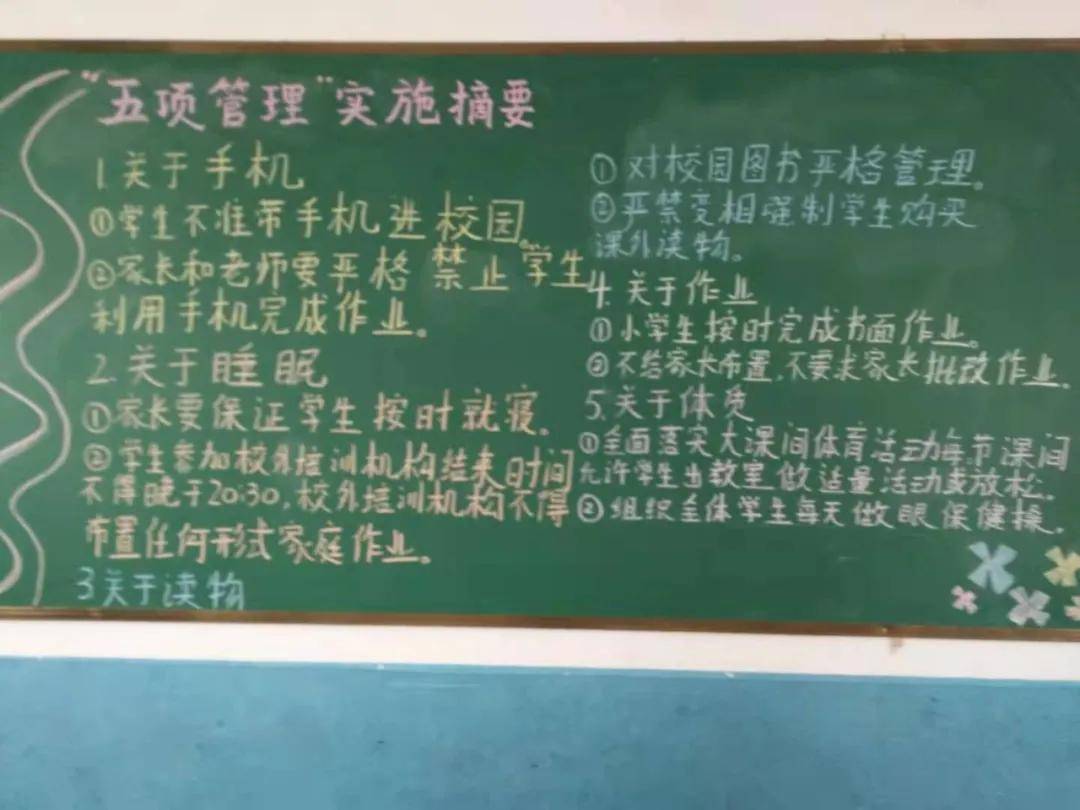 “五项管理”实施摘要
1.关于手机
①学生不准带手机进校园。
②家长和老师要严格禁止学生
利用手机完成作业。
2.关于睡眠
①家长要保证学生按时就寝.
②学生参加校外培训机构结束时间
不得晚于20:30,校外培训机构不得
布置任何形式家庭作业。
3关于读物
①对校园图书严格管理。
②严禁变相强制学生购买
课外读物。
4.关于作业
①小学生按时完成书面作业。
②不给家长布置,不要求家长批改作业.
5.关于体质
①全面落实大课间体育活动每节课间
允许学生出教室做适量活动或放松.
②组织全体学生每天做眼保健操.